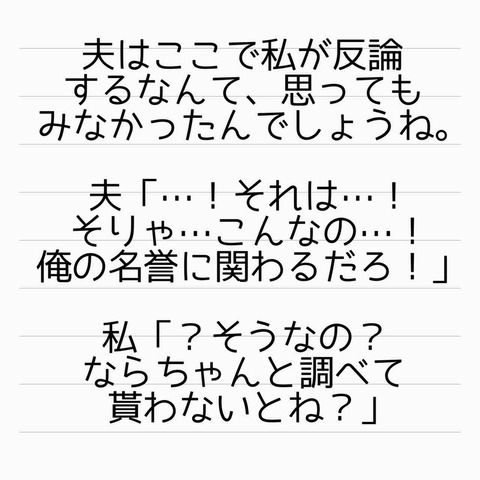 夫はここで私が反論
するなんて、思っても
みなかったんでしょうね。
夫「…！それは…！
そりゃ…こんなの…！
俺の名誉に関わるだろ！」
私「？そうなの？
ならちゃんと調べて
貰わないとね？」